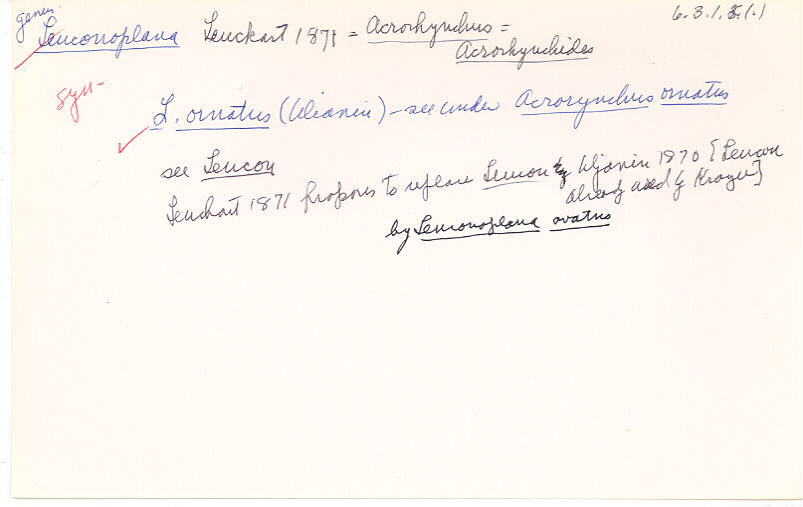 genus.
6.3.1.3.1.1
Leuconoplana Leuckart 1871 = Acrorhynchus =
Acrorhynchides
syn-
L. ornatus (Ulianin) - see under Acrorynchus ornatus
see Leucon
Leuckart 1871 proposes to replace Leucon by Uljanin 1870 [Leucon
already used by Kroyer]
by Leuconoplana ovatus